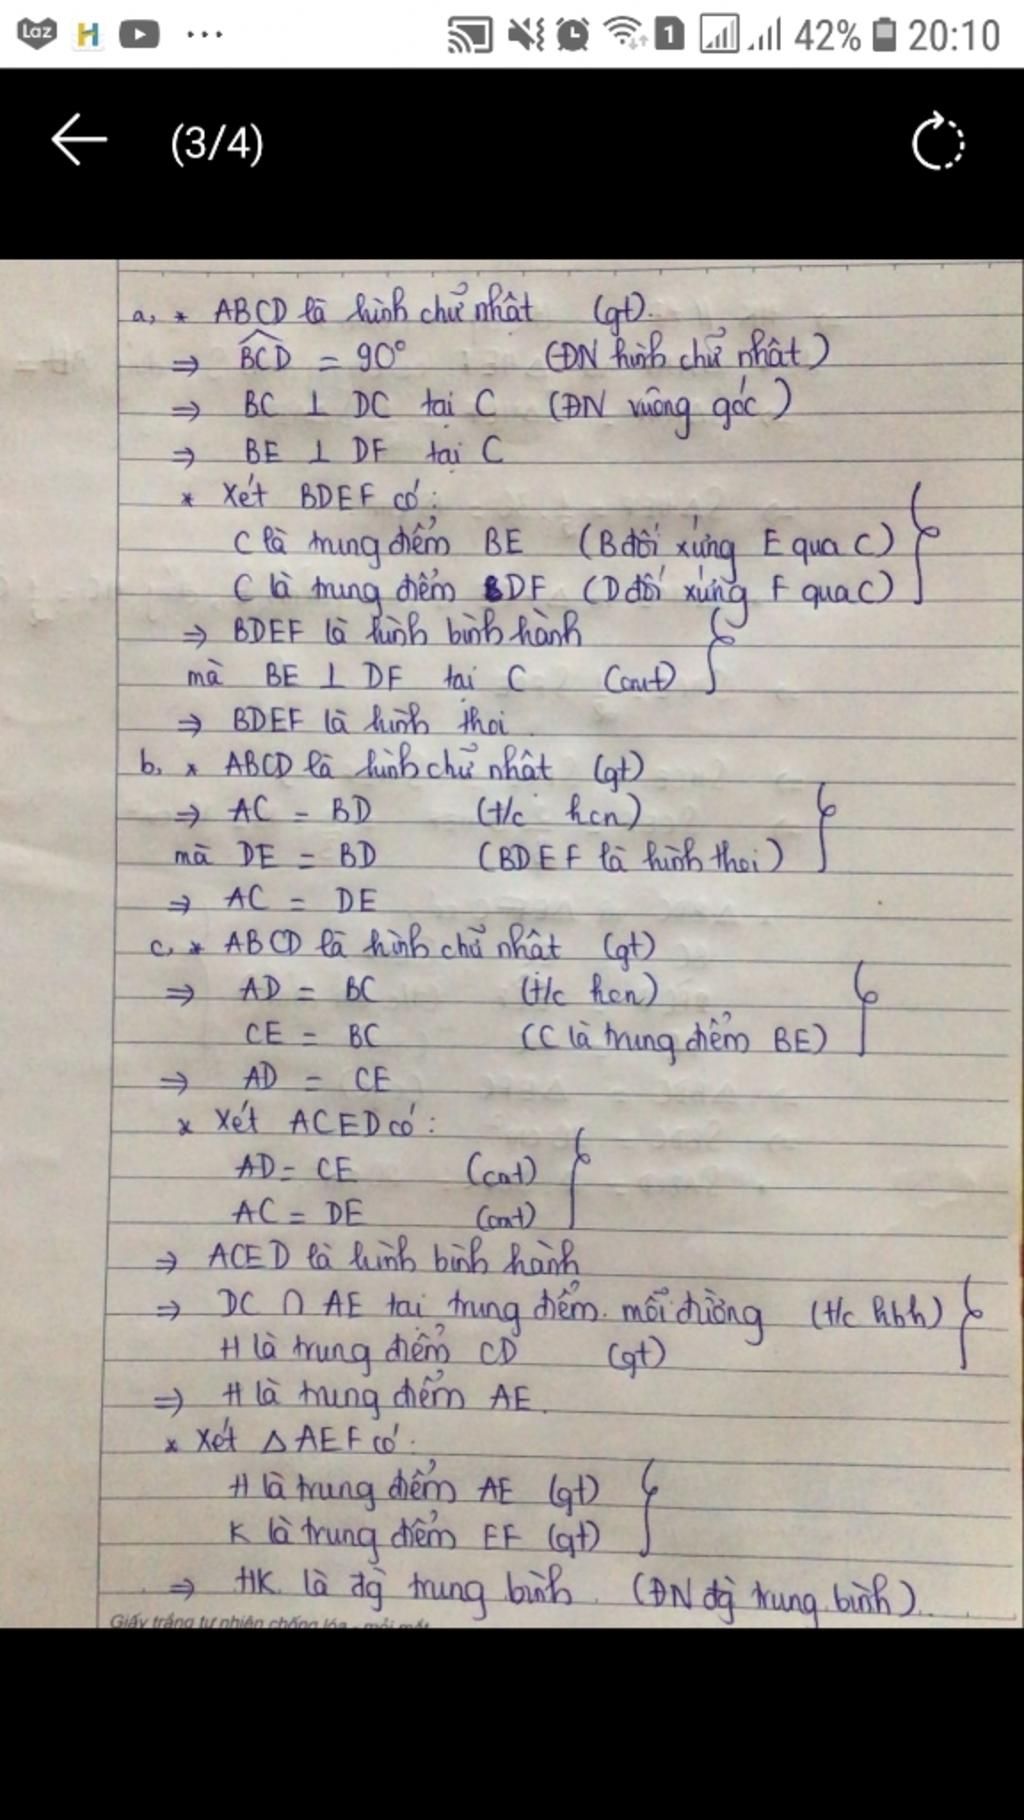 Laz H ... 1 42% 20:10
(3/4)
a, * ABCD là hình chữ nhật (gt).
⇒ BCD = 90° (ĐN hình chữ nhật)
⇒ BC ⊥ DC tại C (ĐN vuông góc)
⇒ BE ⊥ DF tại C
* Xét BDEF có:
C là trung điểm BE (B đối xứng E qua C)
C là trung điểm DF (D đối xứng F qua C)
⇒ BDEF là hình bình hành
mà BE ⊥ DF tại C (cmt)
⇒ BDEF là hình thoi
b, * ABCD là hình chữ nhật (gt)
⇒ AC = BD (t/c hcn)
mà DE = BD (BDEF là hình thoi)
⇒ AC = DE
c, * ABCD là hình chữ nhật (gt)
⇒ AD = BC (t/c hcn)
CE = BC (C là trung điểm BE)
⇒ AD = CE
* Xét ACED có:
AD = CE (cmt)
AC = DE (cmt)
⇒ ACED là hình bình hành
⇒ DC ∩ AE tại trung điểm mỗi đường (t/c hbh)
H là trung điểm CD (gt)
⇒ H là trung điểm AE.
* Xét △AEF có:
H là trung điểm AE (gt)
K là trung điểm EF (gt)
⇒ HK là đg trung bình (ĐN đg trung bình).
Giấy trắng tự nhiên chống lóa - mỏi mắt